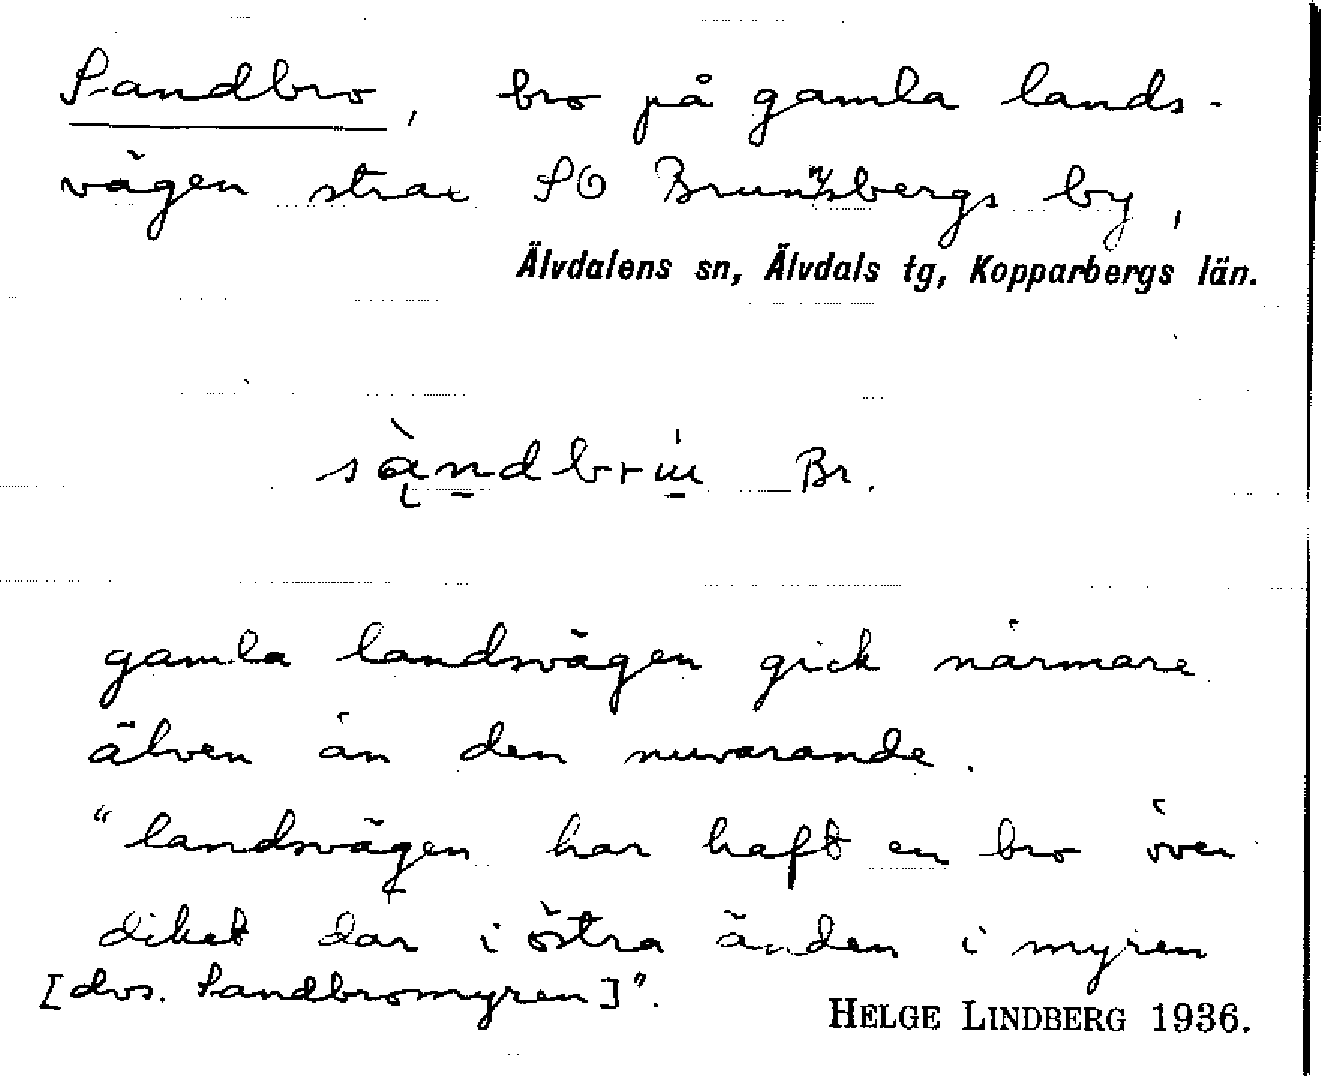 Sandbro, bro på gamla lands-
vägen strax SO Brunnsbergs by,
Älvdalens sn, Älvdals tg, Kopparbergs län.
sàndbrįu̇ Br.
gamla landsvägen gick närmare
älven än den nuvarande.
"landsvägen har haft en bro över
diket där i östra änden i myren
[dvs. Sandbromyren]".
HELGE LINDBERG 1936.